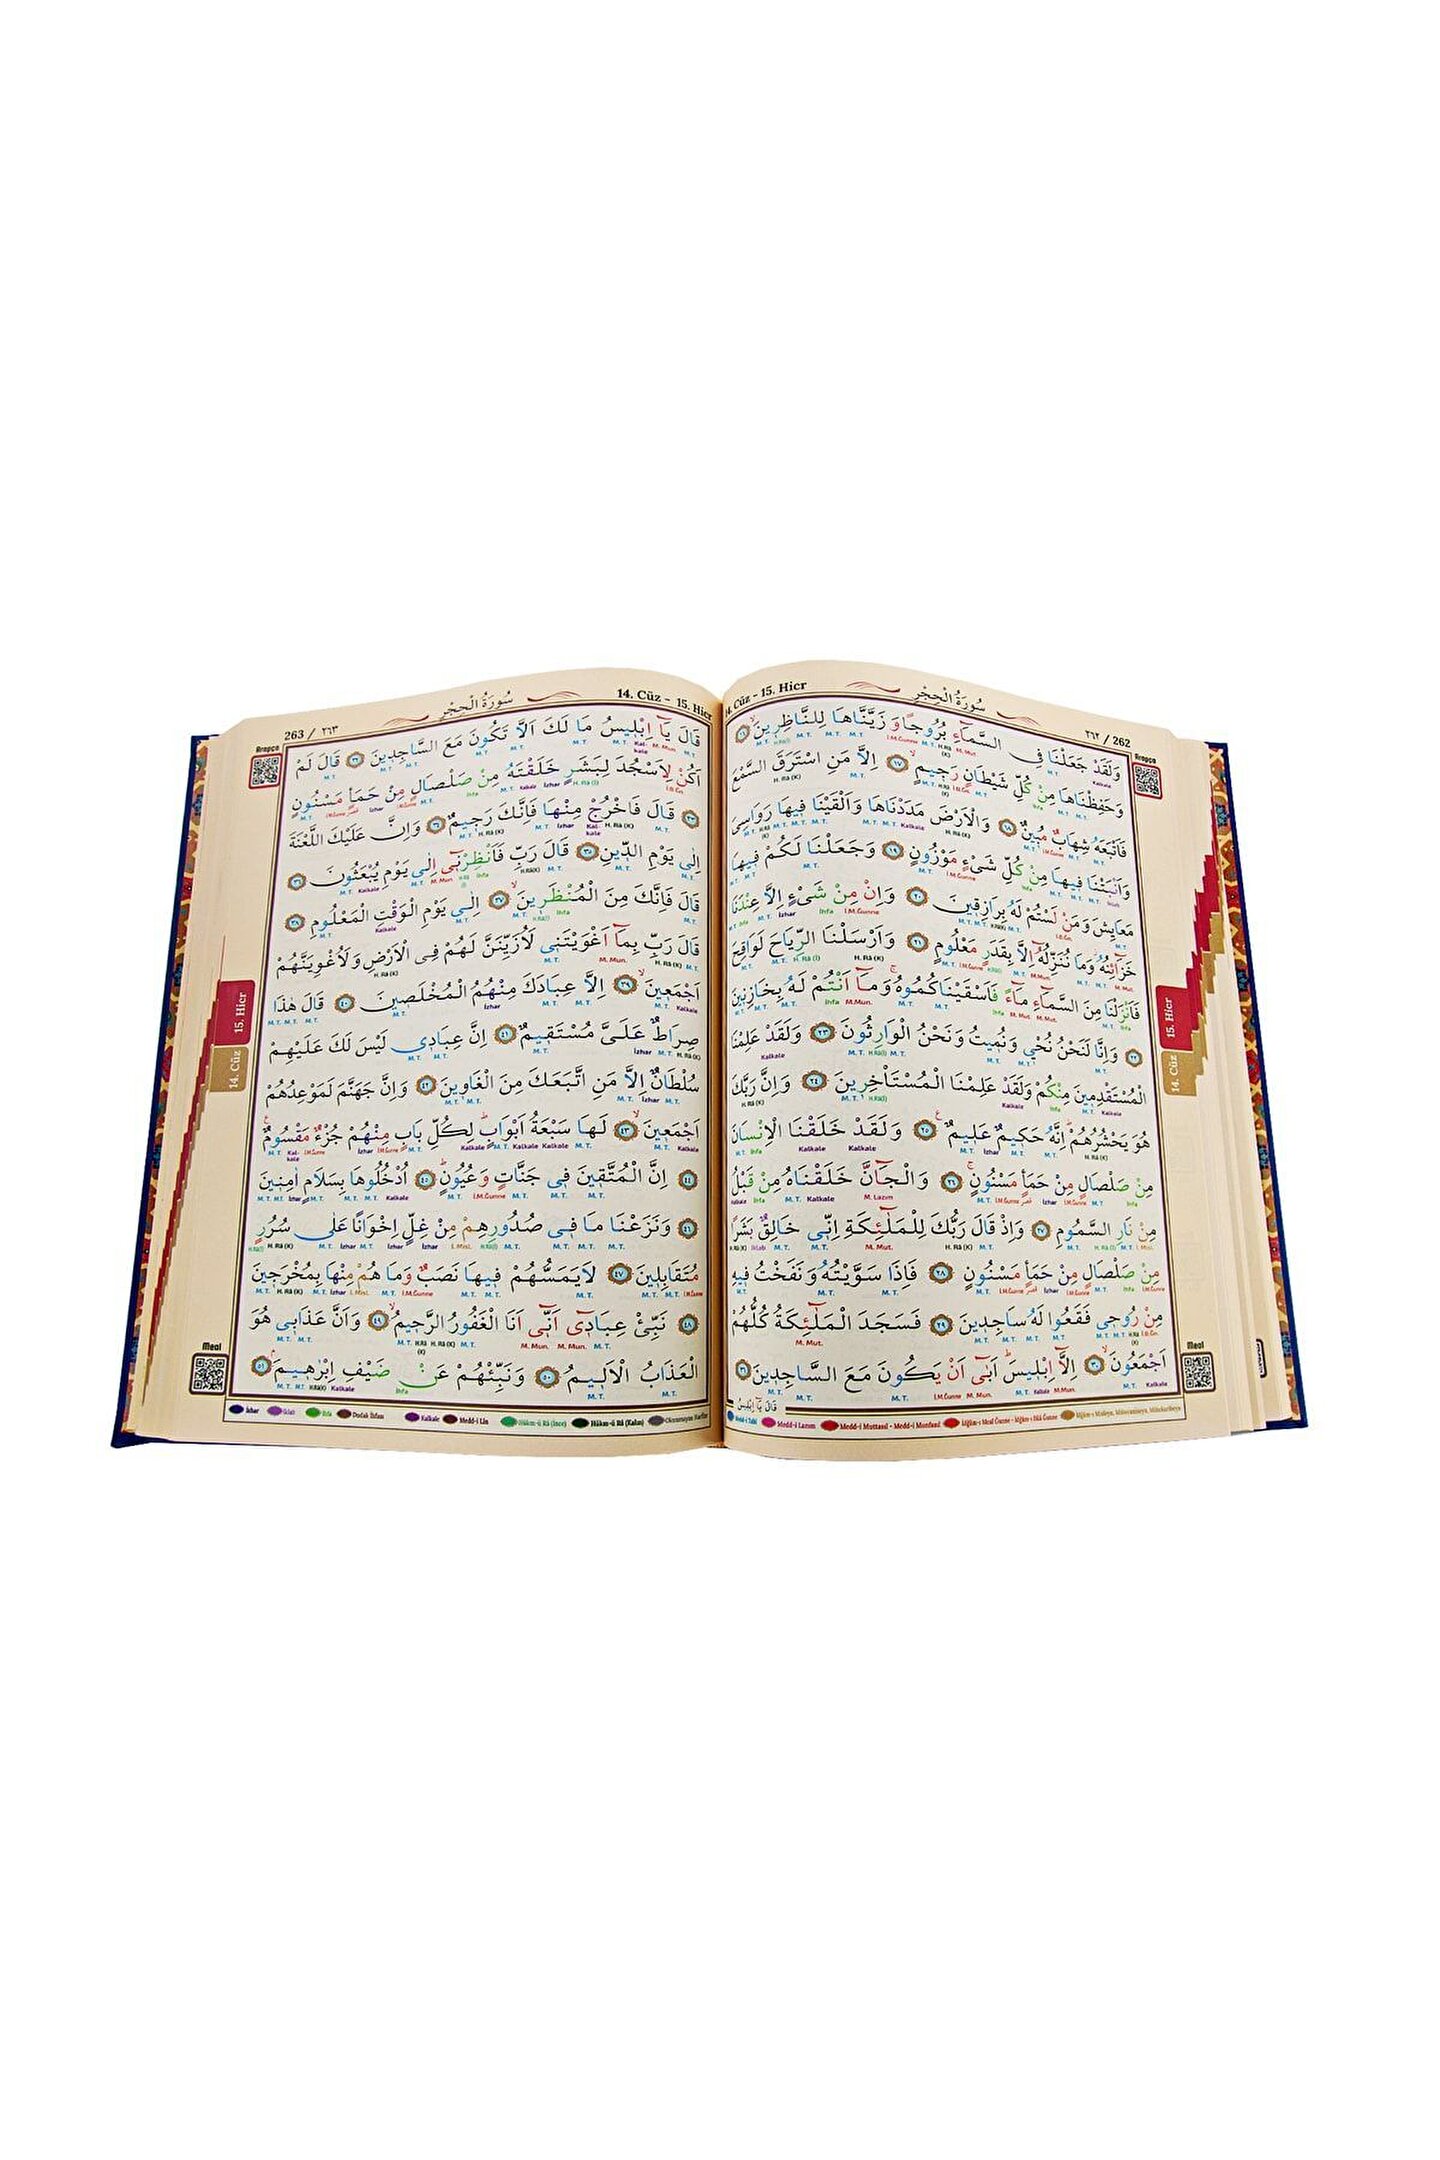 ٢٦٢ / 262
سُورَةُ الْحِجْرِ
14. Cüz - 15. Hicr
Arapça
وَلَقَدْ جَعَلْنَا فِي السَّمَآءِ بُرُوجًا وَزَيَّنَّاهَا لِلنَّاظِرِينَۙ ﴿١٦﴾
وَحَفِظْنَاهَا مِنْ كُلِّ شَيْطَانٍ رَجِيمٍۙ ﴿١٧﴾ اِلَّا مَنِ اسْتَرَقَ السَّمْعَ
فَاَتْبَعَهُ شِهَابٌ مُبِينٌ ﴿١٨﴾ وَالْاَرْضَ مَدَدْنَاهَا وَاَلْقَيْنَا فِيهَا رَوَاسِيَ
وَاَنْبَتْنَا فِيهَا مِنْ كُلِّ شَيْءٍ مَوْزُونٍ ﴿١٩﴾ وَجَعَلْنَا لَكُمْ فِيهَا
مَعَايِشَ وَمَنْ لَسْتُمْ لَهُ بِرَازِقِينَ ﴿٢٠﴾ وَاِنْ مِنْ شَيْءٍ اِلَّا عِنْدَنَا
خَزَآئِنُهُ وَمَا نُنَزِّلُهُٓ اِلَّا بِقَدَرٍ مَعْلُومٍ ﴿٢١﴾ وَاَرْسَلْنَا الرِّيَاحَ لَوَاقِحَ
فَاَنْزَلْنَا مِنَ السَّمَآءِ مَآءً فَاَسْقَيْنَاكُمُوهُۚ وَمَآ اَنْتُمْ لَهُ بِخَازِنِينَ
﴿٢٢﴾ وَاِنَّا لَنَحْنُ نُحْيِ وَنُمِيتُ وَنَحْنُ الْوَارِثُونَ ﴿٢٣﴾ وَلَقَدْ عَلِمْنَا
الْمُسْتَقْدِمِينَ مِنْكُمْ وَلَقَدْ عَلِمْنَا الْمُسْتَأْخِرِينَ ﴿٢٤﴾ وَاِنَّ رَبَّكَ
هُوَ يَحْشُرُهُمْۜ اِنَّهُ حَكِيمٌ عَلِيمٌ۟ ﴿٢٥﴾ وَلَقَدْ خَلَقْنَا الْاِنْسَانَ
مِنْ صَلْصَالٍ مِنْ حَمَأٍ مَسْنُونٍۚ ﴿٢٦﴾ وَالْجَآنَّ خَلَقْنَاهُ مِنْ قَبْلُ
مِنْ نَارِ السَّمُومِ ﴿٢٧﴾ وَاِذْ قَالَ رَبُّكَ لِلْمَلٰٓئِكَةِ اِنِّي خَالِقٌ بَشَرًا
مِنْ صَلْصَالٍ مِنْ حَمَأٍ مَسْنُونٍ ﴿٢٨﴾ فَاِذَا سَوَّيْتُهُ وَنَفَخْتُ فِيهِ
مِنْ رُوحِي فَقَعُوا لَهُ سَاجِدِينَ ﴿٢٩﴾ فَسَجَدَ الْمَلٰٓئِكَةُ كُلُّهُمْ
اَجْمَعُونَۙ ﴿٣٠﴾ اِلَّآ اِبْلِيسَۜ اَبٰىٓ اَنْ يَكُونَ مَعَ السَّاجِدِينَ ﴿٣١﴾
قَالَ يَآ اِبْلِيسُ
15. Hicr
14. Cüz
Meal
Medd-i Tabi Medd-i Lazım Medd-i Muttasıl - Medd-i Munfasıl
14. Cüz - 15. Hicr
سُورَةُ الْحِجْرِ
263 / ٢٦٣
Arapça
قَالَ يَآ اِبْلِيسُ مَا لَكَ اَلَّا تَكُونَ مَعَ السَّاجِدِينَ ﴿٣٢﴾ قَالَ لَمْ
اَكُنْ لِاَسْجُدَ لِبَشَرٍ خَلَقْتَهُ مِنْ صَلْصَالٍ مِنْ حَمَأٍ مَسْنُونٍ
﴿٣٣﴾ قَالَ فَاخْرُجْ مِنْهَا فَاِنَّكَ رَجِيمٌۙ ﴿٣٤﴾ وَاِنَّ عَلَيْكَ اللَّعْنَةَ
اِلٰى يَوْمِ الدِّينِ ﴿٣٥﴾ قَالَ رَبِّ فَاَنْظِرْنِيٓ اِلٰى يَوْمِ يُبْعَثُونَ ﴿٣٦﴾
قَالَ فَاِنَّكَ مِنَ الْمُنْظَرِينَۙ ﴿٣٧﴾ اِلٰى يَوْمِ الْوَقْتِ الْمَعْلُومِ ﴿٣٨﴾
قَالَ رَبِّ بِمَآ اَغْوَيْتَنِي لَاُزَيِّنَنَّ لَهُمْ فِي الْاَرْضِ وَلَاُغْوِيَنَّهُمْ
اَجْمَعِينَۙ ﴿٣٩﴾ اِلَّا عِبَادَكَ مِنْهُمُ الْمُخْلَصِينَ ﴿٤٠﴾ قَالَ هٰذَا
صِرَاطٌ عَلَيَّ مُسْتَقِيمٌ ﴿٤١﴾ اِنَّ عِبَادِي لَيْسَ لَكَ عَلَيْهِمْ
سُلْطَانٌ اِلَّا مَنِ اتَّبَعَكَ مِنَ الْغَاوِينَ ﴿٤٢﴾ وَاِنَّ جَهَنَّمَ لَمَوْعِدُهُمْ
اَجْمَعِينَۙ ﴿٤٣﴾ لَهَا سَبْعَةُ اَبْوَابٍۜ لِكُلِّ بَابٍ مِنْهُمْ جُزْءٌ مَقْسُومٌ۟
﴿٤٤﴾ اِنَّ الْمُتَّقِينَ فِي جَنَّاتٍ وَعُيُونٍۜ ﴿٤٥﴾ اُدْخُلُوهَا بِسَلَامٍ اٰمِنِينَ
﴿٤٦﴾ وَنَزَعْنَا مَا فِي صُدُورِهِمْ مِنْ غِلٍّ اِخْوَانًا عَلٰى سُرُرٍ
مُتَقَابِلِينَ ﴿٤٧﴾ لَا يَمَسُّهُمْ فِيهَا نَصَبٌ وَمَا هُمْ مِنْهَا بِمُخْرَجِينَ
﴿٤٨﴾ نَبِّئْ عِبَادِيٓ اَنِّيٓ اَنَا الْغَفُورُ الرَّحِيمُۙ ﴿٤٩﴾ وَاَنَّ عَذَابِي هُوَ
الْعَذَابُ الْاَلِيمُ ﴿٥٠﴾ وَنَبِّئْهُمْ عَنْ ضَيْفِ اِبْرٰهِيمَۢ ﴿٥١﴾
15. Hicr
14. Cüz
Meal
İzhar İklab İhfa Dudak İhfası Kalkale Medd-i Lin Hükm-ü Râ (İnce) Hükm-ü Râ (Kalın) Okunmayan Harfler